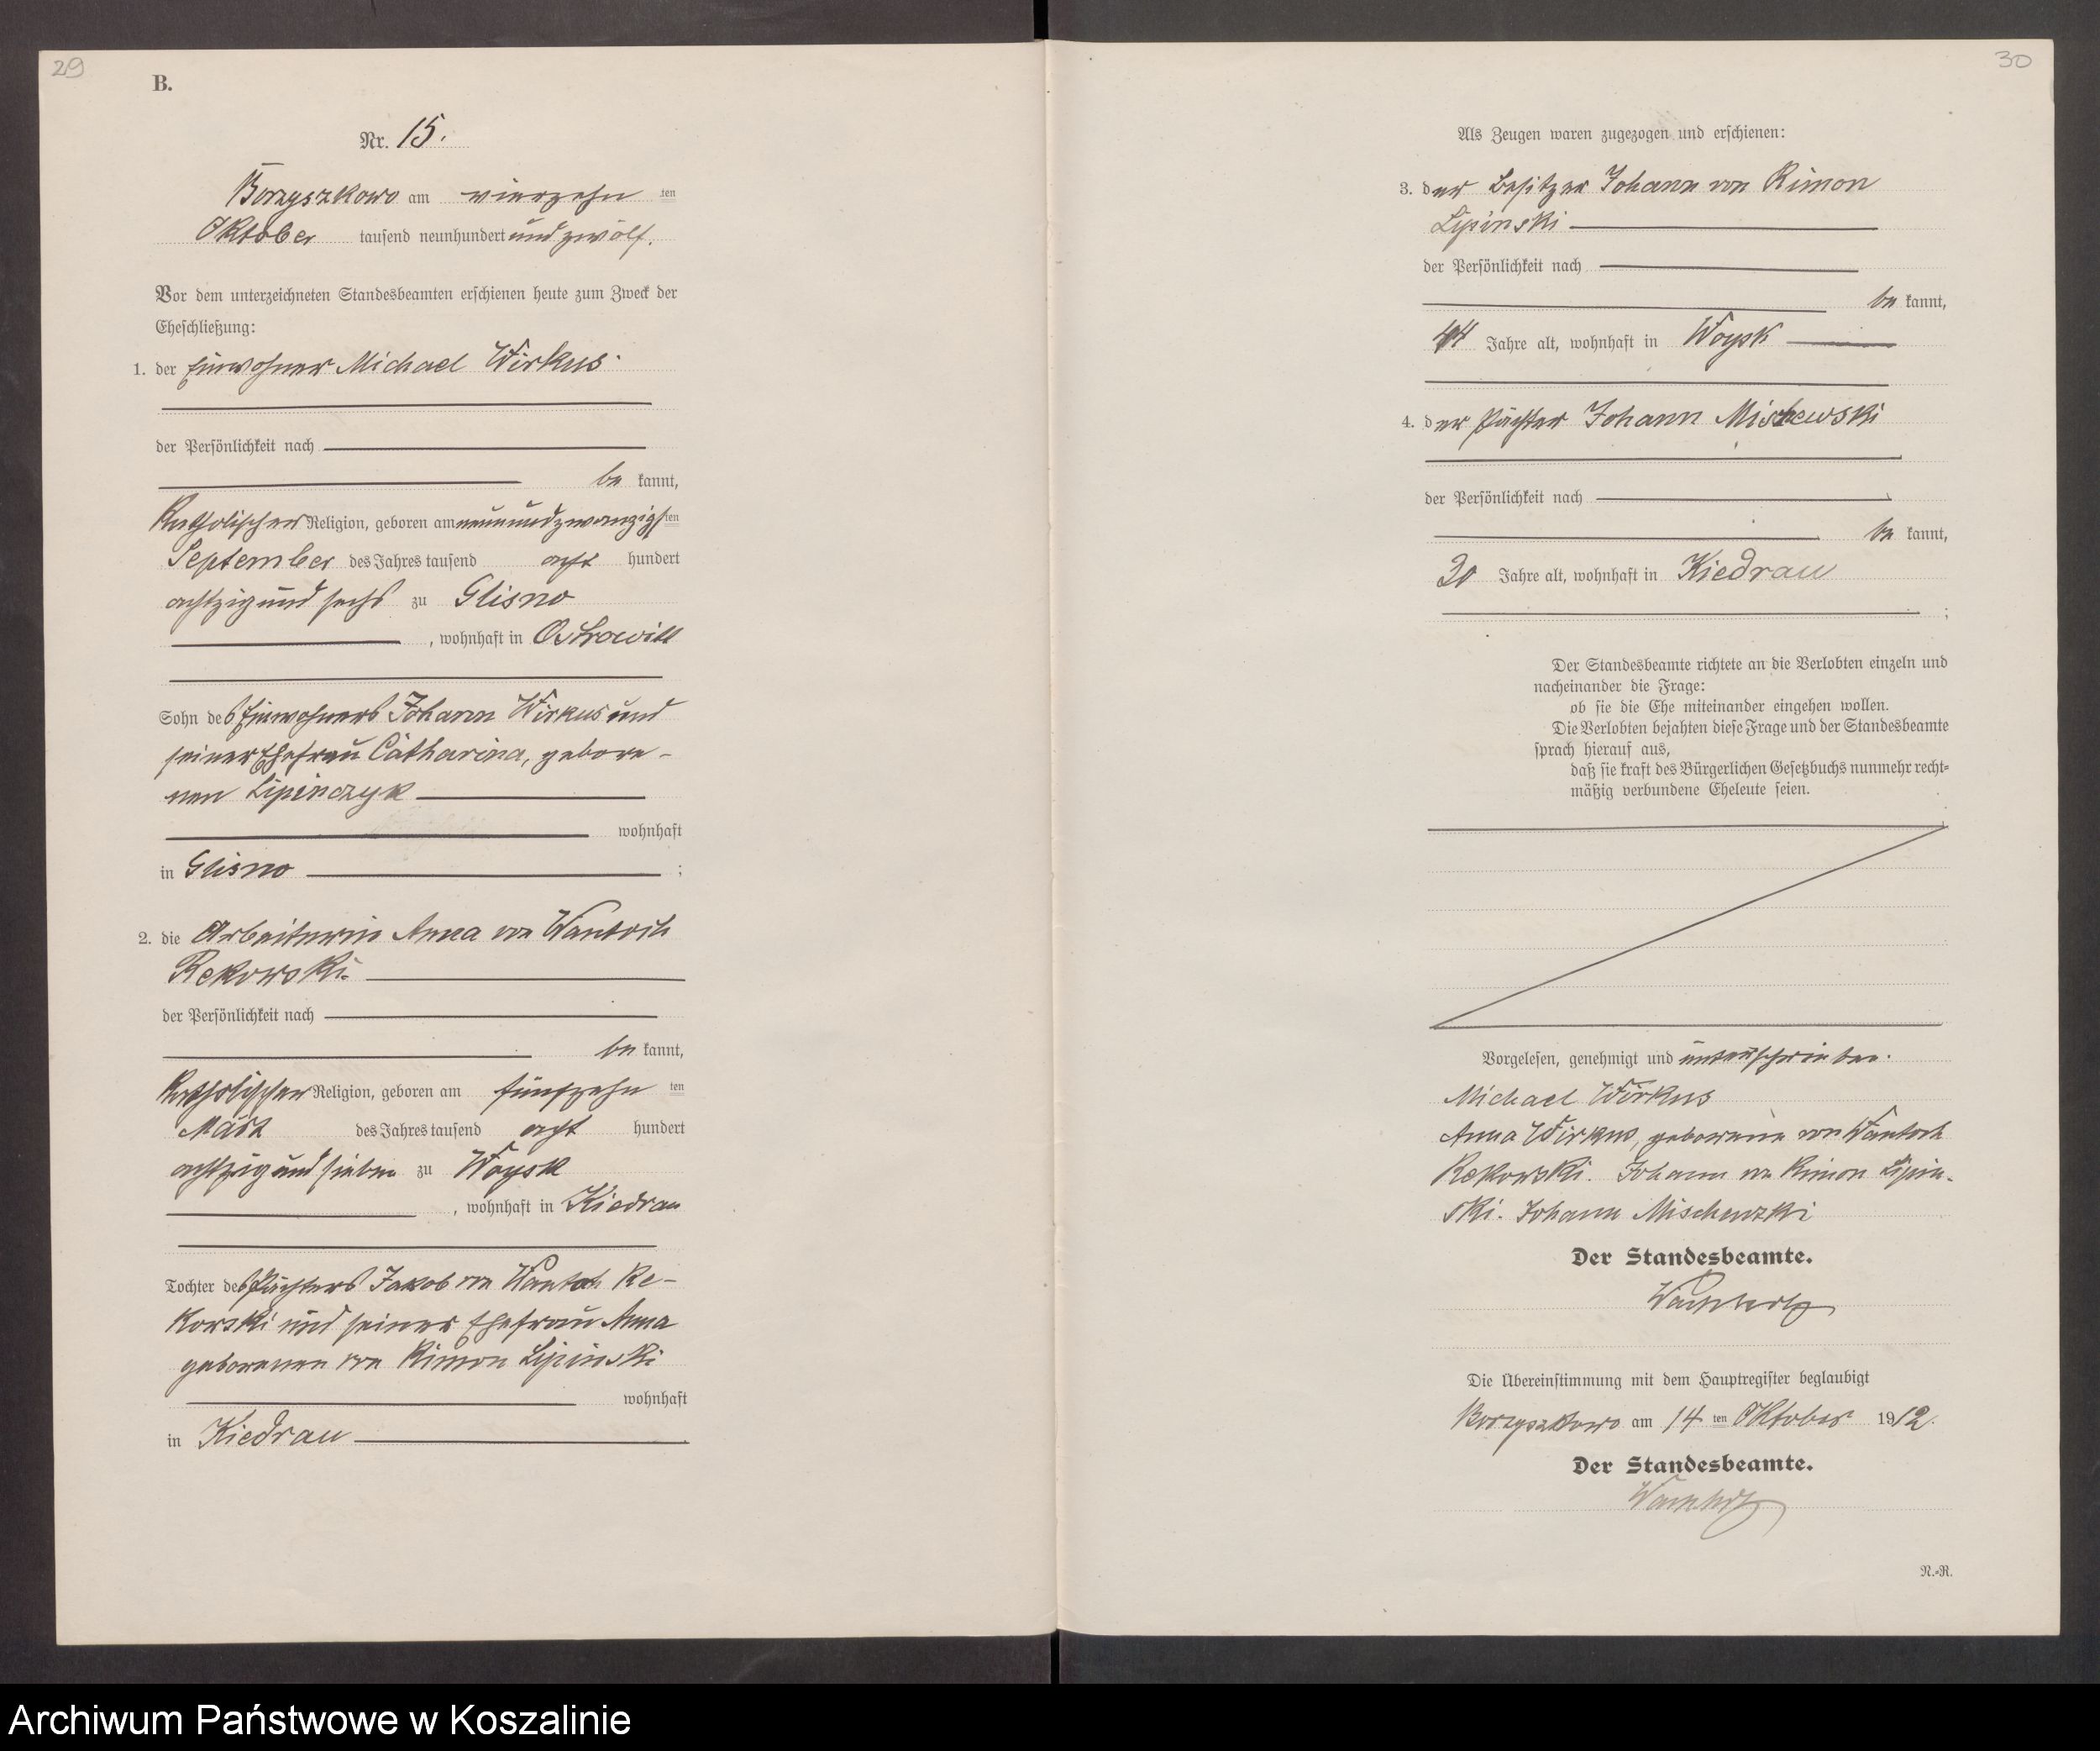 29
B.
Nr. 15.
Borzyszkowo am vierzehn ten
Oktober tausend neunhundert und zwölf.
Vor dem unterzeichneten Standesbeamten erschienen heute zum Zweck der
Eheschließung:
1. der Einwohner Michael Wirkus
der Persönlichkeit nach
be kannt,
Katholischer Religion, geboren am neunundzwanzigsten
September des Jahres tausend acht hundert
achtzig und sechs zu Glisno
, wohnhaft in Ostrowitt
Sohn des Einwohners Johann Wirkus und
seiner Ehefrau Catharina, gebore-
nen Lipinczyk
wohnhaft
in Glisno ;
2. die Arbeiterin Anna von Wantoch
Rekowski
der Persönlichkeit nach
be kannt,
Katholischer Religion, geboren am fünfzehn ten
März des Jahres tausend acht hundert
achtzig und sieben zu Woysk
, wohnhaft in Kiedrau
Tochter des Pächters Jakob von Wantoch Re-
kowski und seiner Ehefrau Anna
geborenen von Rimon Lipinski
wohnhaft
in Kiedrau
30
Als Zeugen waren zugezogen und erschienen:
3. der Besitzer Johann von Rimon
Lipinski
der Persönlichkeit nach
be kannt,
44 Jahre alt, wohnhaft in Woysk
4. der Pächter Johann Mischewski
der Persönlichkeit nach
be kannt,
30 Jahre alt, wohnhaft in Kiedrau
;
Der Standesbeamte richtete an die Verlobten einzeln und
nacheinander die Frage:
ob sie die Ehe miteinander eingehen wollen.
Die Verlobten bejahten diese Frage und der Standesbeamte
sprach hierauf aus,
daß sie kraft des Bürgerlichen Gesetzbuchs nunmehr recht-
mäßig verbundene Eheleute seien.
Vorgelesen, genehmigt und unterschrieben.
Michael Wirkus
Anna Wirkus, geborene von Wantoch
Rekowski. Johann von Rimon Lipin-
ski. Johann Mischewski
Der Standesbeamte.
Die Übereinstimmung mit dem Hauptregister beglaubigt
Borzyszkowo am 14 ten Oktober 1912.
Der Standesbeamte.
N.-R.
Archiwum Państwowe w Koszalinie